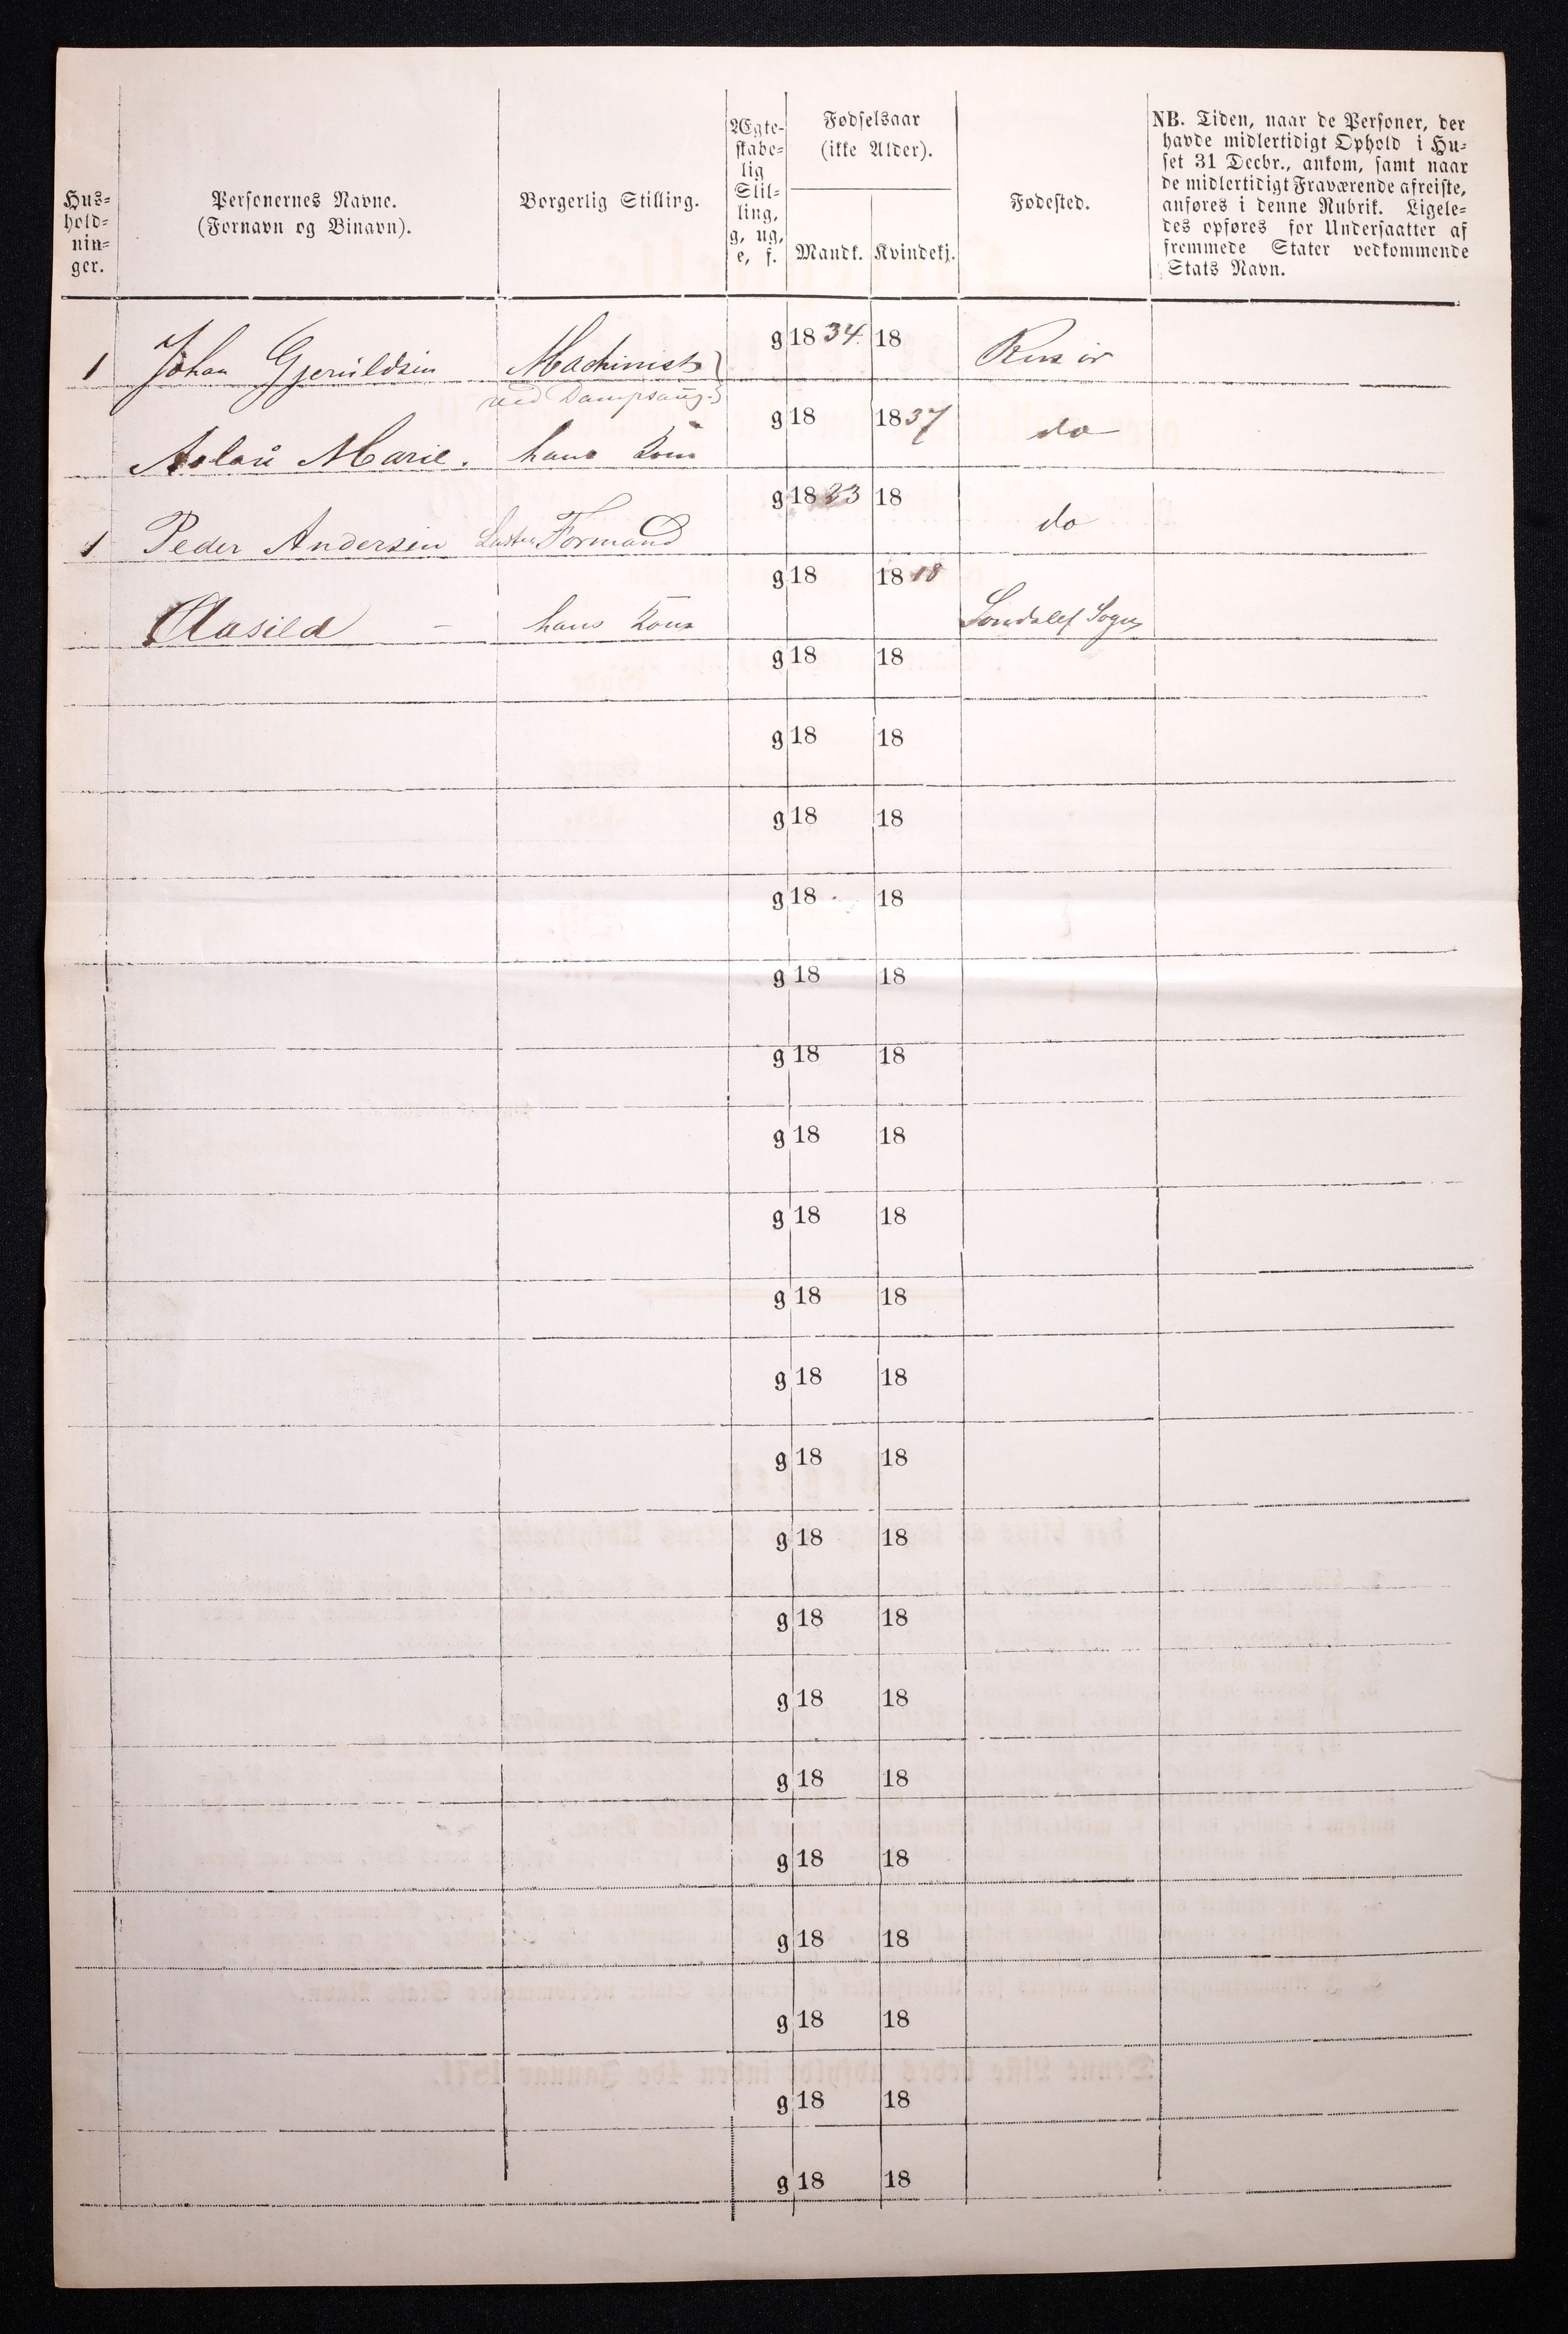 Hus-
hold-
nin-
ger.
Personernes Navne.
(Fornavn og Binavn).
Borgerlig Stilling.
Ægte-
skabe-
lig
Stil-
ling,
g, ug,
e, f.
Fødselsaar
(ikke Alder).
Mandk. Kvindekj.
Fødested.
NB. Tiden, naar de Personer, der
havde midlertidigt Ophold i Hu-
set 31 Decbr., ankom, samt naar
de midlertidigt Fraværende afreiste,
anføres i denne Rubrik. Ligele-
des opføres for Undersaatter af
fremmede Stater vedkommende
Stats Navn.
1 Johan Gjeruldsen Machinist g 18 34. 18
ved Dampsaug.
Marie. hans Kone g 18 18 37 do
1 Peder Andersen Formand g 18 23 18 do
Aasild - hans Kone g 18 18 18 Sogn
g 18 18
g 18 18
g 18 18
g 18 18
g 18 18
g 18 18
g 18 18
g 18 18
g 18 18
g 18 18
g 18 18
g 18 18
g 18 18
g 18 18
g 18 18
g 18 18
g 18 18
g 18 18
g 18 18
g 18 18